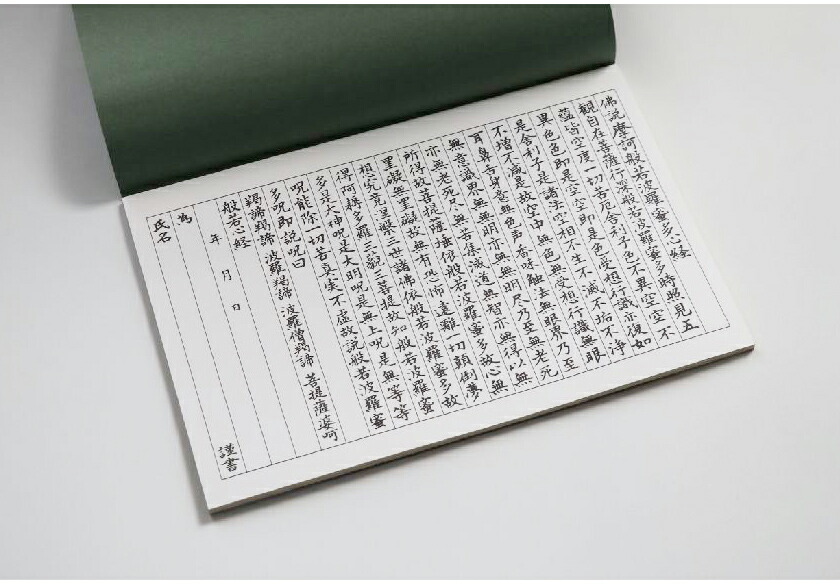 佛説摩訶般若波羅蜜多心経
觀自在菩薩行深般若波羅蜜多時照見五
蘊皆空度一切苦厄舎利子色不異空空不
異色色即是空空即是色受想行識亦復如
是舎利子是諸法空相不生不滅不垢不浄
不増不減是故空中無色無受想行識無眼
耳鼻舌身意無色声香味触法無眼界乃至
無意識界無無明亦無無明尽乃至無老死
亦無老死尽無苦集滅道無智亦無得以無
所得故菩提薩埵依般若波羅蜜多故心無
罣礙無罣礙故無有恐怖遠離一切顛倒夢
想究竟涅槃三世諸佛依般若波羅蜜多故
得阿耨多羅三藐三菩提故知般若波羅蜜
多是大神呪是大明呪是無上呪是無等等
呪能除一切苦真実不虚故説般若波羅蜜
多呪即説呪曰
羯諦羯諦 波羅羯諦 波羅僧羯諦 菩提薩婆呵
般若心経
年 月 日
為
氏名 謹書